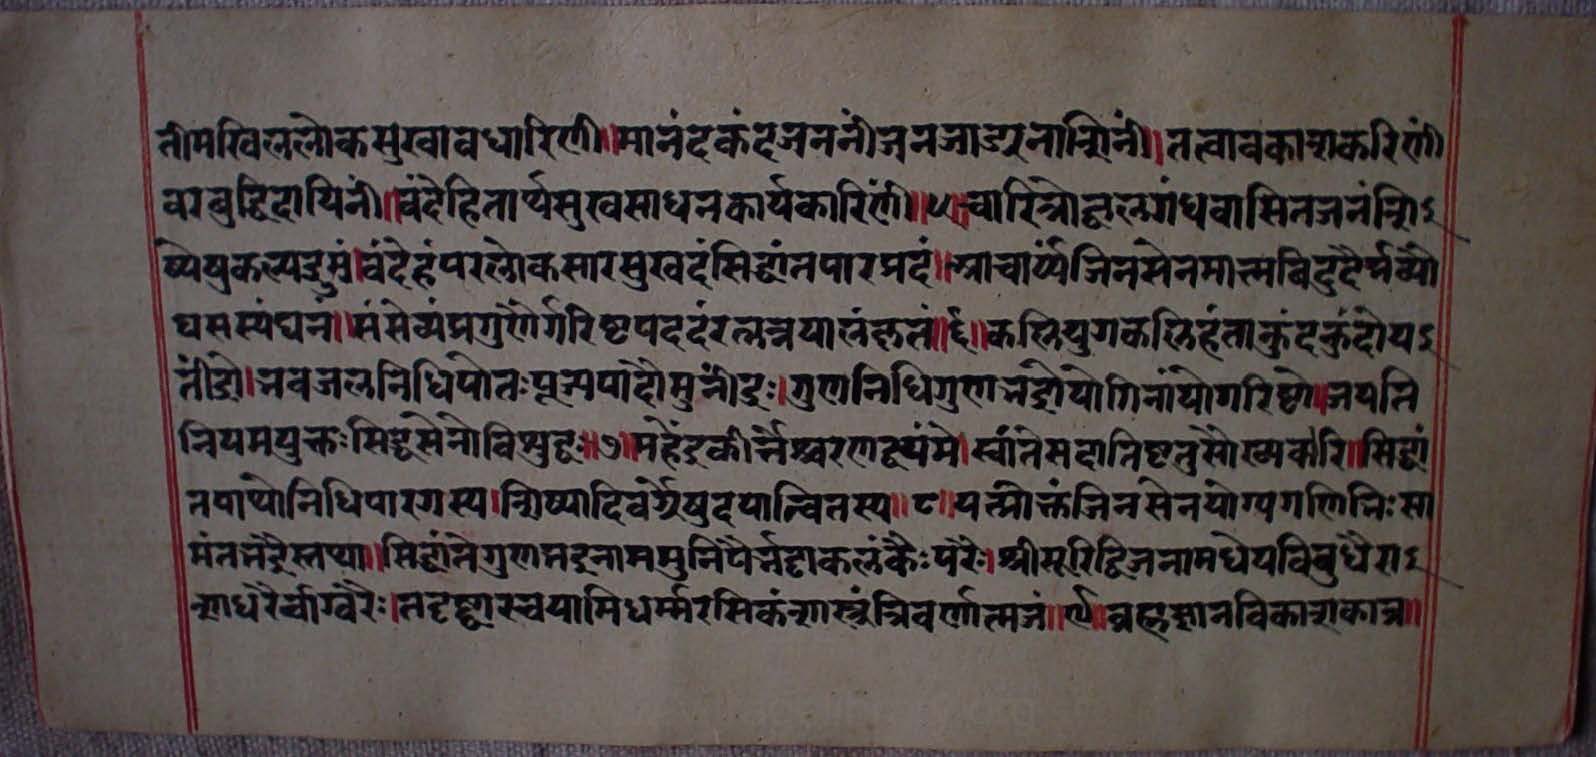 तीमखिललोकसुखावधारिणी॥मानंदकंदजननींजनजाड्यनाशिनीं।तत्वावकाशकरिणीं
वरबुद्धिदायिनीं॥वंदेहितार्थसुखसाधनकार्यकारिणीं॥५॥चारित्रोज्वलगंधवासितजनंशि
ष्येषुकल्पद्रुमं।वंदेहंपरलोकसारसुखदंसिद्धांतपारप्रदं॥आचार्य्यंजिनसेनमात्मविदुदैर्भव्यौ
घसस्यंघनं॥संसेव्यंप्रगुणैर्गरिष्टपददंरत्नत्रयालंकृतं॥६॥कलियुगकलिहंताकुंदकुंदोय
तींद्रो।भवजलनिधिपोतःपूज्यपादौमुनींद्रः।गुणनिधिगुणभद्रोयोगिनांयोगरिष्टो॥जयति
नियमयुक्तःसिद्धसेनोविशुद्धः॥७॥महेंद्रकीर्त्तेश्चरणद्वयंमे।स्वांतेसदातिष्टतुसौख्यकारि॥सिद्धां
तपाथोनिधिपारगस्य।शिष्यादिवर्गेषुदयान्वितस्य॥८॥यत्प्रोक्तंजिनसेनयोग्यगणिभिःसा
मंतभद्रैस्तथा॥सिद्धांतेगुणभद्रनाममुनिपैर्भट्टाकलंकैःपरैः।श्रीसूरिद्विजनामधेयविबुधैरा
शाधरैर्वाग्वरैः।तद्दृष्ट्वारचयामिधर्म्मरसिकंशास्त्रंत्रिवर्णात्मजं॥९॥ब्रह्मज्ञानविकाशकाव्र॥